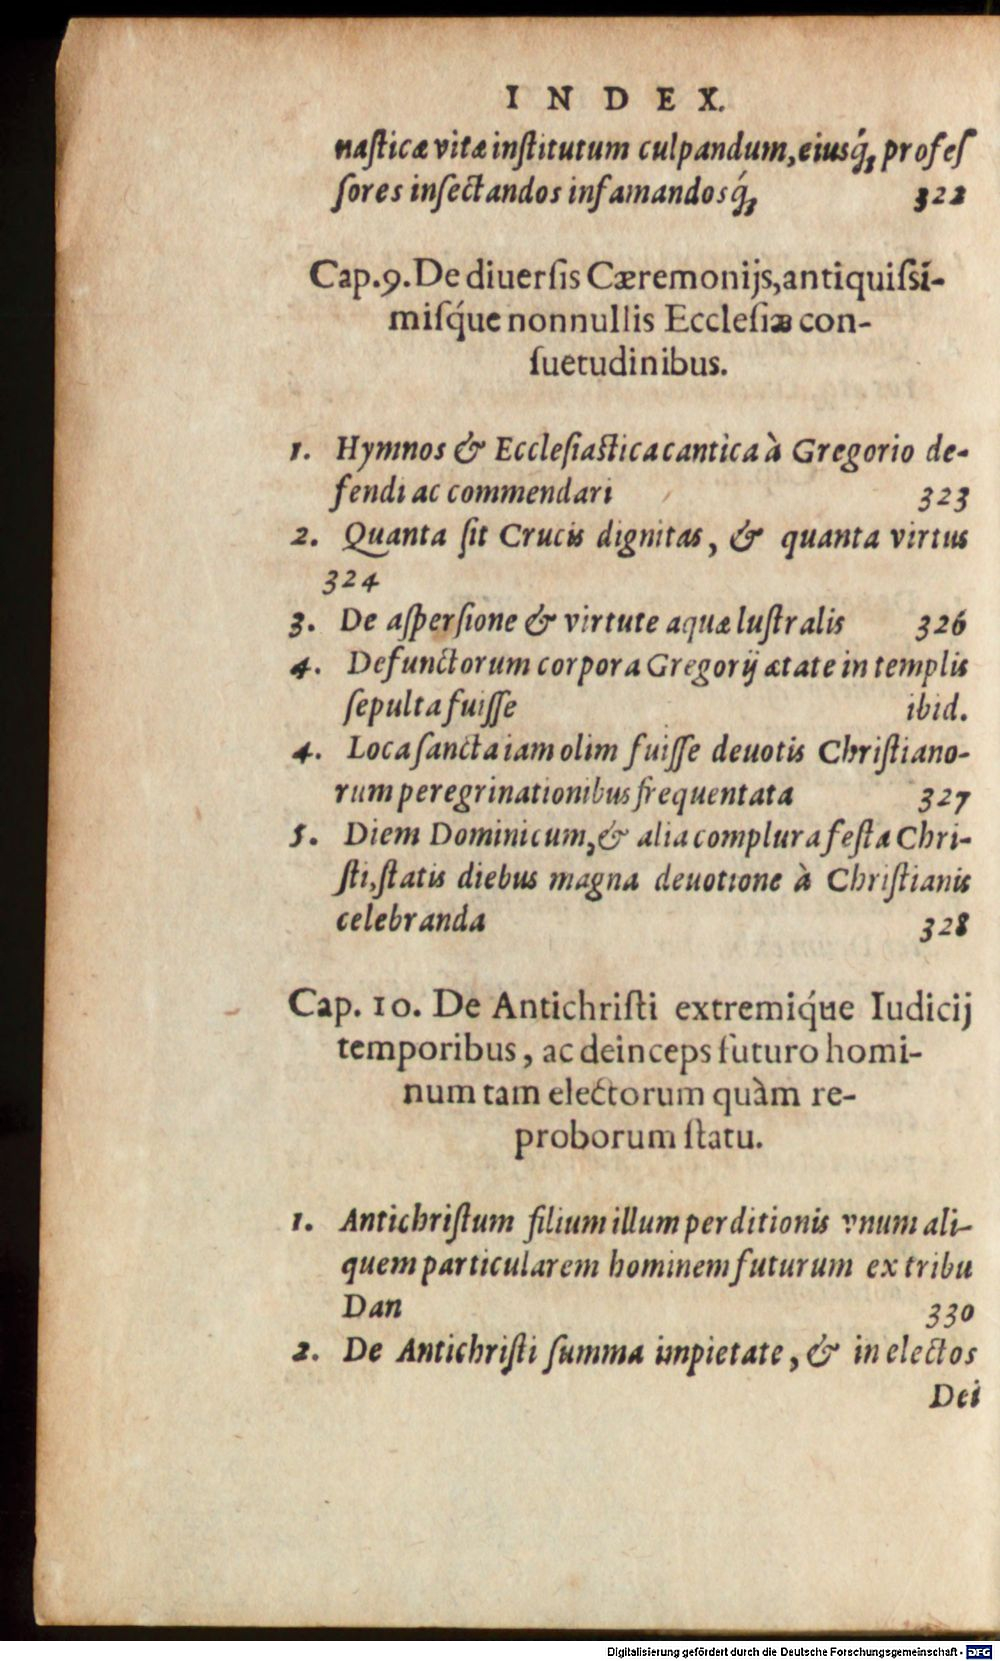 INDEX.
nasticæ vitæ institutum culpandum, eiusq́; profes
sores insectandos infamandosq́; 322
Cap.9. De diuersis Cæremonijs, antiquissi-
misq́ue nonnullis Ecclesiæ con-
suetudinibus.
1. Hymnos & Ecclesiastica cantica à Gregorio de-
fendi ac commendari 323
2. Quanta sit Crucis dignitas, & quanta virtus
324
3. De aspersione & virtute aquæ lustralis 326
4. Defunctorum corpora Gregorij ætate in templis
sepulta fuisse ibid.
4. Loca sancta iam olim fuisse deuotis Christiano-
rum peregrinationibus frequentata 327
5. Diem Dominicum, & alia complura festa Chri-
sti, statis diebus magna deuotione à Christianis
celebranda 328
Cap. 10. De Antichristi extremiq́ue Iudicij
temporibus, ac deinceps futuro homi-
num tam electorum quàm re-
proborum statu.
1. Antichristum filium illum perditionis vnum ali-
quem particularem hominem futurum ex tribu
Dan 330
2. De Antichristi summa impietate, & in electos
Dei
Digitalisierung gefördert durch die Deutsche Forschungsgemeinschaft - DFG